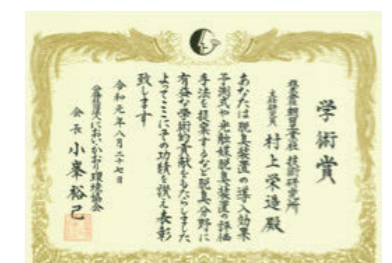 学術賞
株式会社朝日工業社 技術研究所
主任研究員
村上栄造殿
あなたは脱臭装置の導入効果
予測式や光触媒脱臭装置の評価
手法を提案するなど脱臭分野に
有益な学術的貢献をもたらしました
よってここにその功績を讃え表彰
致します
令和元年八月二十七日
公益社団法人におい・かおり環境協会
会長 小峯裕己